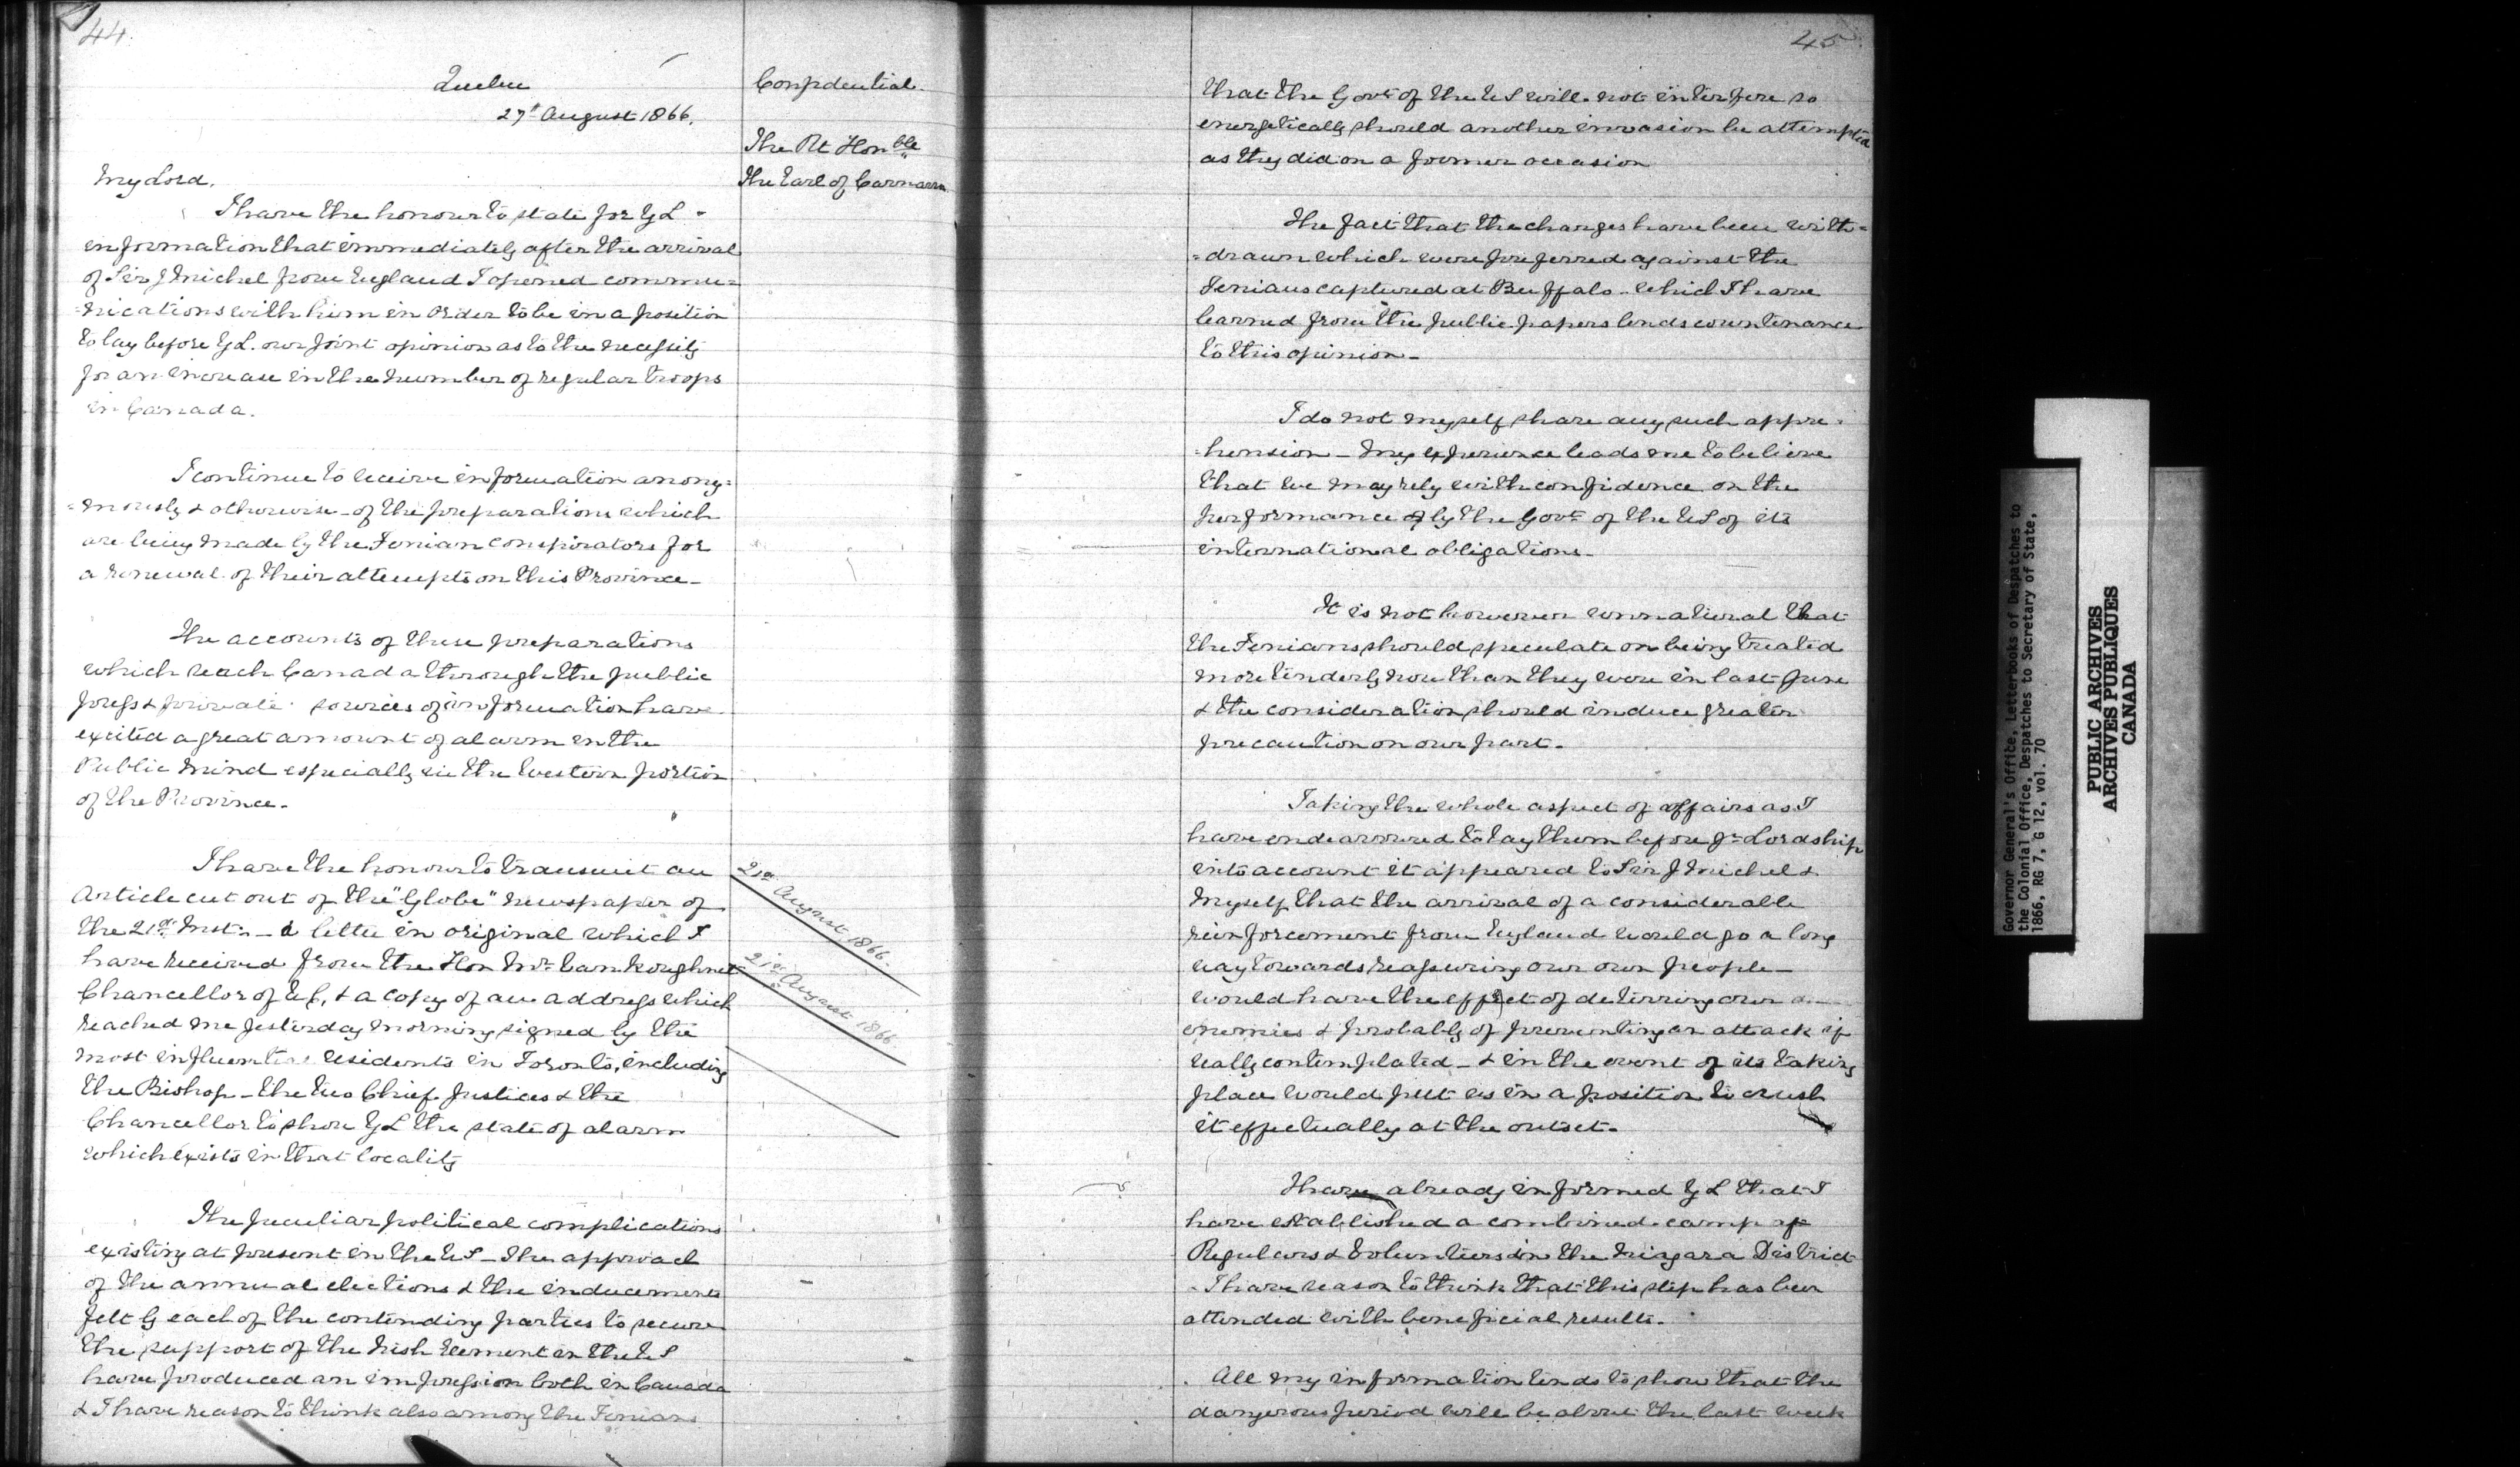 44
Quebec
27th August 1866.
Confidential.
The Rt Honble
The Earl of Carnarvon
My Lord,
I have the honour to state for Y L
information that immediately after the arrival
of Sir J Michel from England I opened commu=
=nications with him in order to be in a position
to lay before Y L. our joint opinion as to the necessity
for an increase in the number of regular troops
in Canada.
I continue to receive information anony=
=mously & otherwise - of the preparations which
are being made by the Fenian conspirators for
a renewal of their attempts on this Province -
The accounts of these preparations
which reach Canada through the public
press & private sources of information have
excited a great amount of alarm in the
Public mind especially in the Western portion
of the Province -
I have the honour to transmit an
Article cut out of the "Globe" newspaper of
the 21st Inst. - a letter in original which I
have received from the Hon Mr Vankoughnet
Chancellor of U C, & a copy of an address which
reached me yesterday morning signed by the
most influential residents in Toronto, including
the Bishop - the two Chief Justices & the
Chancellor to show Y L the state of alarm
which exists in that locality
21st August 1866.
21st August 1866
The peculiar political complications
existing at present in the U S - the approach
of the annual elections & the inducements
felt by each of the contending parties to secure
the support of the Irish Element in the U S
have produced an impression both in Canada
& I have reason to think also among the Fenians
45
that the Govt of the U S will not interfere so
energetically should another invasion be attempted
as they did on a former occasion
The fact that the charges have been with=
=drawn which were preferred against the
Fenians captured at Buffalo - which I have
learned from the public papers lends countenance
to this opinion -
I do not myself share any such appre=
=hension - My experience leads me to believe
that we may rely with confidence on the
performance of by the Govt of the U S of its
international obligations -
It is not however unnatural that
the Fenians should speculate on being treated
more tenderly now than they were in last June
& the consideration should induce greater
precaution on our part -
Taking the whole aspect of affairs as I
have endeavoured to lay them before Yr Lordship
into account it appeared to Sir J Michel &
Myself that the arrival of a considerable
reinforcement from England would go a long
way towards reassuring our own people -
would have the effect of deterring our
enemies & probably of preventing an attack if
really contemplated - & in the event of its taking
place would put us in a position to crush
it effectually at the outset -
I have already informed Y L that I
have established a combined camp of
Regulars & Volunteers in the Niagara District
- I have reason to think that this step has been
attended with beneficial results.
All my information tends to show that the
dangerous period will be about the last week
Governor General's Office, Letterbooks of Despatches to
the Colonial Office, Despatches to Secretary of State,
1866, RG 7, G 12, vol. 70
PUBLIC ARCHIVES
ARCHIVES PUBLIQUES
CANADA